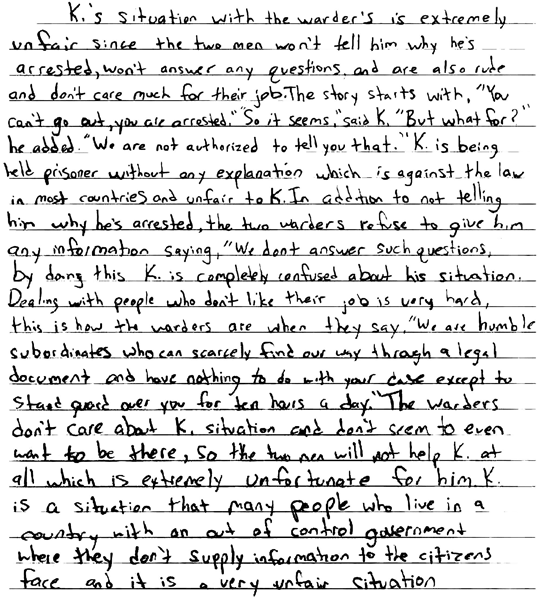 K.'s situation with the warder's is extremely
unfair since the two men won't tell him why he's
arrested, won't answer any questions, and are also rude
and don't care much for their job. The story starts with, "You
can't go out, you are arrested." "So it seems," said K. "But what for?"
he added. "We are not authorized to tell you that." K. is being
held prisoner without any explanation which is against the law
in most countries and unfair to K. In addition to not telling
him why he's arrested, the two warders refuse to give him
any information saying, "We dont answer such questions,
by doing this K. is completely confused about his situation.
Dealing with people who don't like their job is very hard,
this is how the warders are when they say, "We are humble
subordinates who can scarcely find our way through a legal
document and have nothing to do with your case except to
stand guard over you for ten hours a day." The warders
don't care about K. situation and don't seem to even
want to be there, so the two men will not help K. at
all which is extremely unfortunate for him. K.
is a situation that many people who live in a
country with an out of control government
where they don't supply information to the citizens
face and it is a very unfair situation